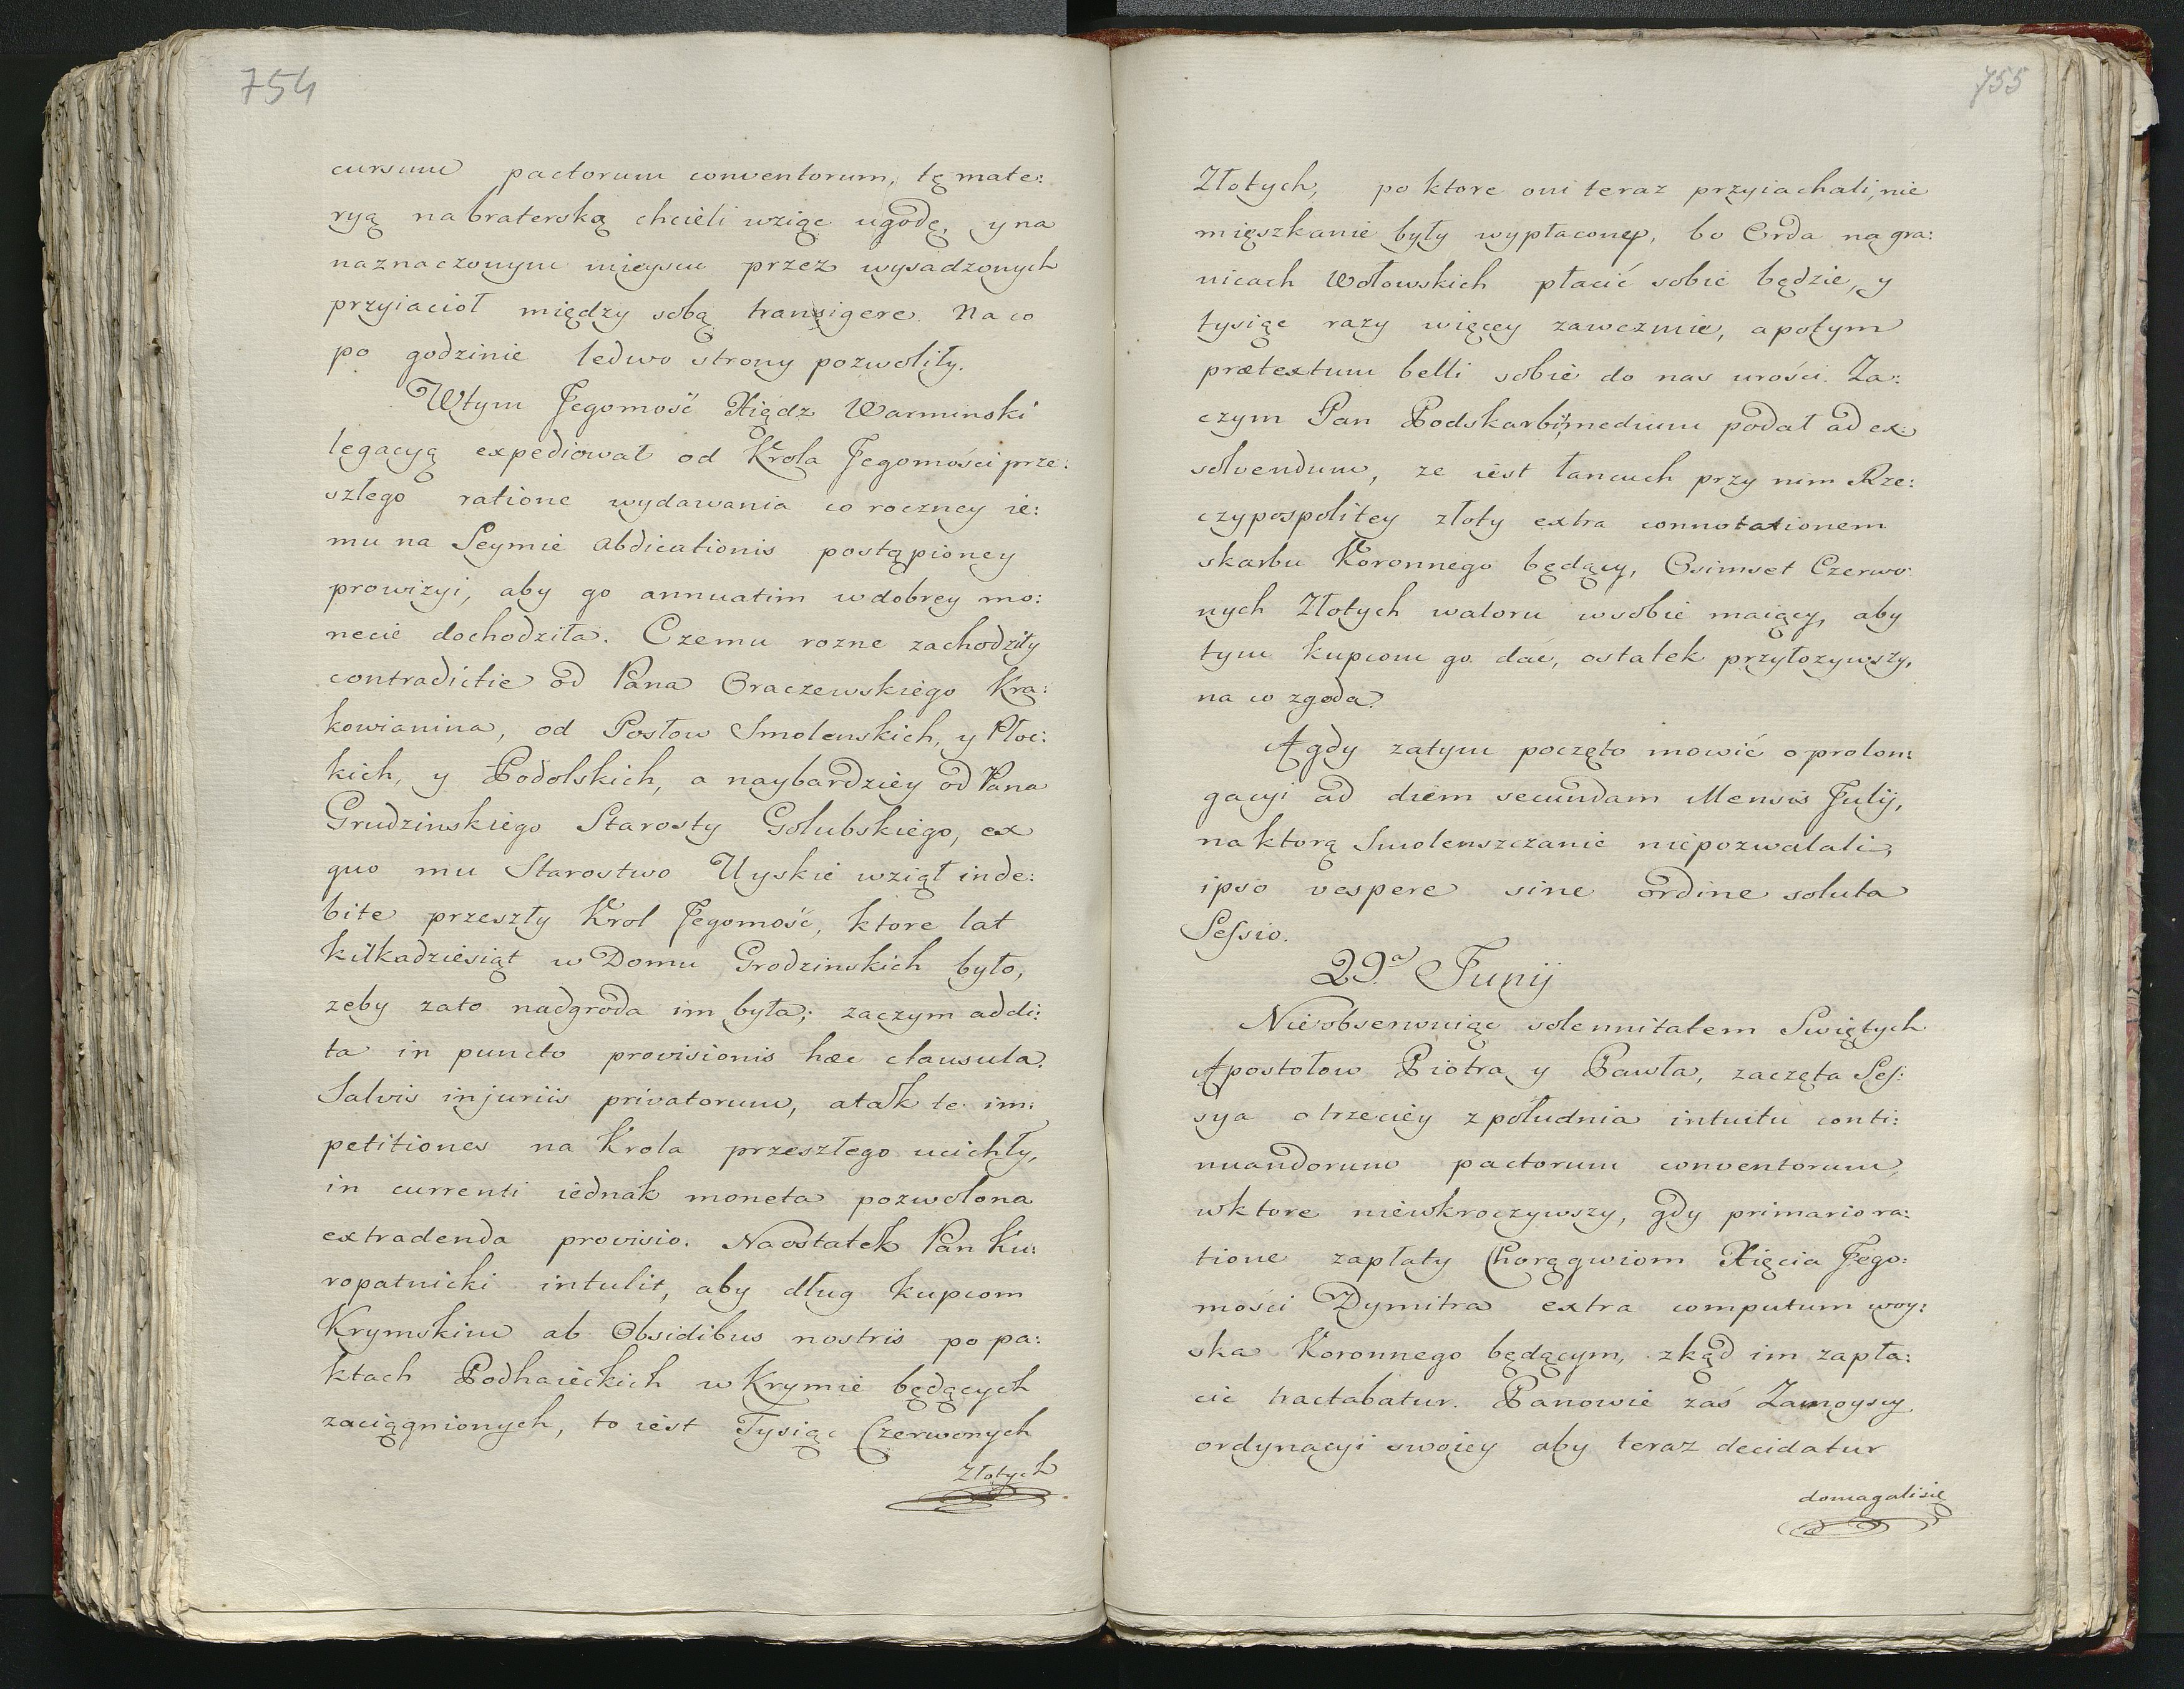 754
cursum pactorum conventorum, tę mate:
ryą na braterską chcieli wziąc ugodę, y na
naznaczonym mieyscu przez wysadzonych
przyiacioł między sobą transigere. Na co
po godzinie ledwo strony pozwoliły.
Wtym Jegomość Xiądz Warminski
legacyą expediował od Krola Jegomości prze:
szłego ratione wydawania co roczney ie:
mu na Seymie abdicationis postąpioney
prowizyi, aby go annuatim w dobrey mo:
necie dochodziła. Czemu rozne zachodziły
contradictie od Pana Oraczewskiego Kra:
kowianina, od Posłow Smolenskich, y Płoc:
kich, y Podolskich, a naybardziey od Pana
Grudzinskiego Starosty Golubskiego, ex
quo mu Starostwo Uyskie wziął inde:
bite przeszły Krol Jegomość, ktore lat
kilkadziesiąt w Domu Grodzinskich było,
zeby zato nadgroda im była; zaczym addi:
ta in puncto provisionis hæc clausula.
Salvis injuriis privatorum, a tak te im:
petitiones na Krola przeszłego ucichły,
in currenti iednak moneta pozwolona
extradenda provisio. Naostatek Pan Ku:
ropatnicki intulit, aby dług kupcom
Krymskim ab Obsidibus nostris po pa:
ktach Podhaieckich w Krymie będących
zaciągnionych, to iest Tysiąc Czerwonych
Złotych
755
Złotych, po ktore oni teraz przyiachali, nie
mięszkanie były wypłacone, bo Orda na gra:
nicach Wołowskich płacić sobie będzie, y
tysiąc razy więcey zawezmie, a potym
prætextum belli sobie do nas urości. Za:
czym Pan Podskarbi, medium podał ad ex:
solvendum, ze iest łancuch przy nim Rze:
czypospolitey złoty extra connotationem
skarbu Koronnego będący, Osimset Czerwo
nych Złotych waloru w sobie maiący, aby
tym kupcom go dać, ostatek przyłozywszy,
na co zgoda.
A gdy zatym poczęto mowić o prolon:
gacyi ad diem secundam Mensis Julij,
na ktorą Smolenszczanie niepozwalali,
ipso vespere sine ordine soluta
Sessio.
29.ª Junij
Nieobserwuiąc solennitatem Swiętych
Apostołow Piotra y Pawła, zaczęta Ses:
sya o trzeciey z południa intuitu conti:
nuandorum pactorum conventorum,
w ktore niewkroczywszy, gdy primario ra:
tione zapłaty Chorągwiom Xięcia Jego:
mości Dymitra extra computum woy:
ska Koronnego będącym, zkąd im zapła:
cic tractabatur. Panowie zaś Zamoyscy
ordynacyi swoiey aby teraz decidatur
domagali się